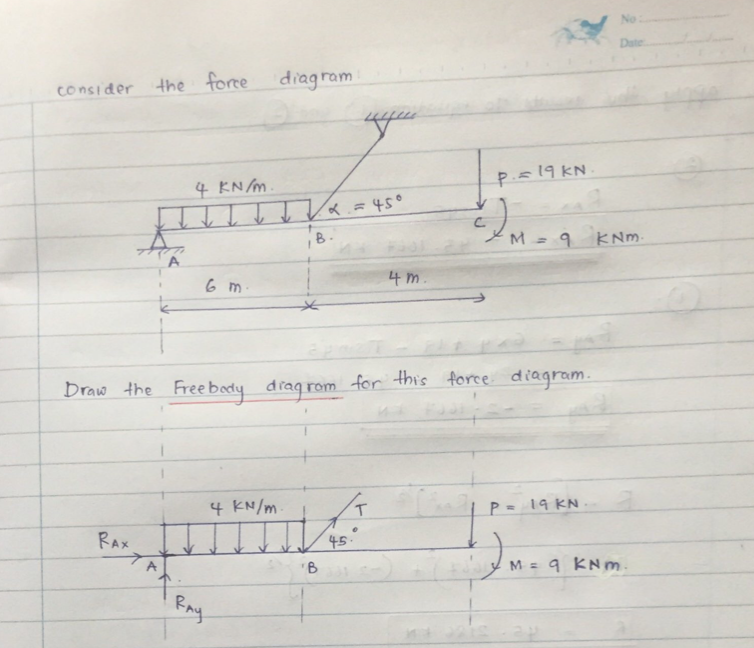 No :
Date:
consider the force diagram
4 KN/m.
α = 45°
P = 19 KN.
A
B.
C
M = 9 KNm.
6 m.
4 m.
Draw the Freebody diagram for this force diagram.
4 KN/m.
T
P = 19 KN.
RAx
45°
A
B
M = 9 KNm.
RAy